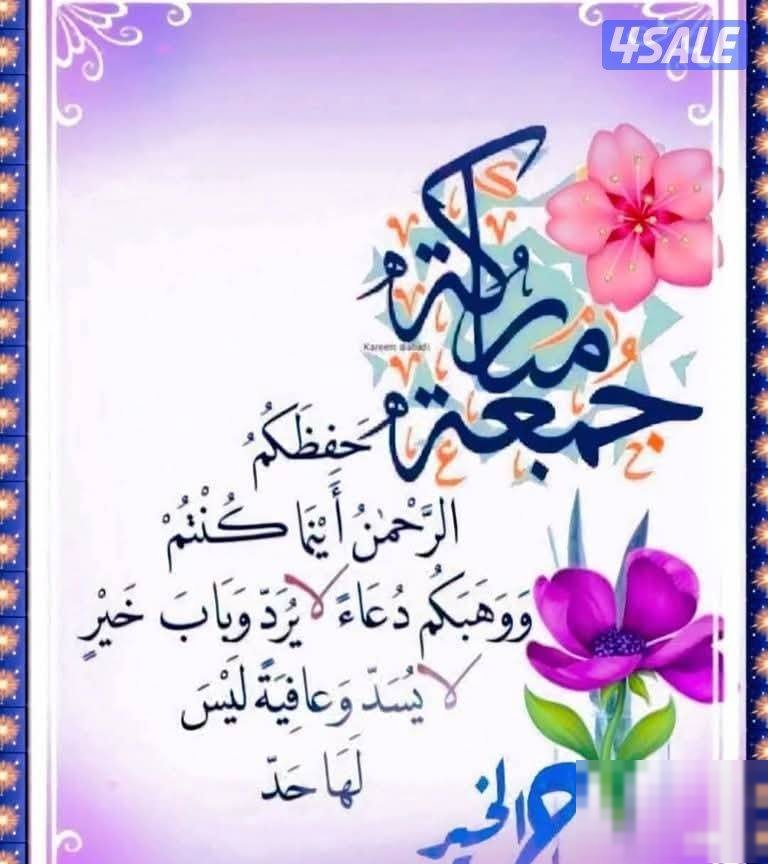 4SALE
مباركة
Kareem
جمعة
حَفِظَكُمُ
الرَّحْمٰنُ أَيْنَمَا كُنْتُمْ
وَوَهَبَكُم دُعَاءً لا يُرَدّ وَبَابَ خَيْرٍ
لا يُسَدّ وَعافِيَةً لَيْسَ
لَهَا حَدّ
الخير